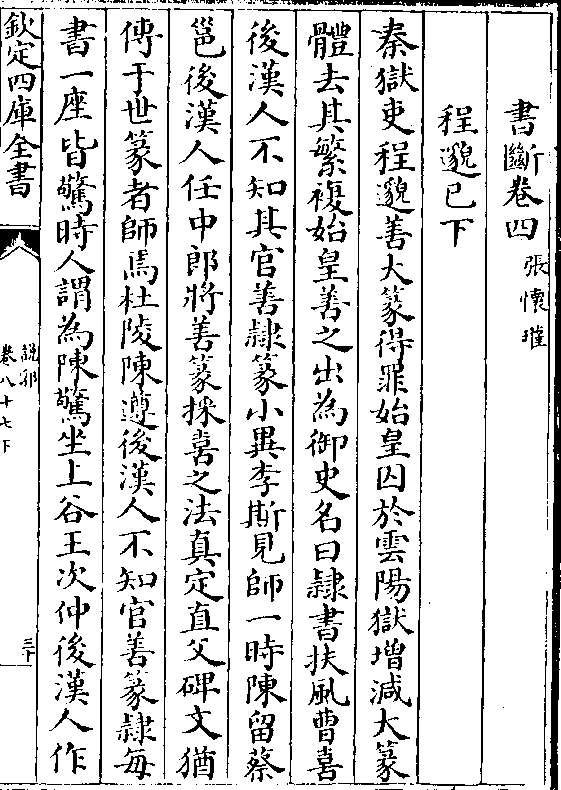 書斷卷四 張懷瓘
程邈已下
秦獄吏程邈善大篆得罪始皇囚於雲陽獄增減大篆
體去其繁複始皇善之出為御史名曰隸書扶風曹喜
後漢人不知其官善隸篆小異李斯見師一時陳留蔡
邕後漢人任中郎將善篆採喜之法真定直父碑文猶
傳于世篆者師焉杜陵陳遵後漢人不知官善篆隸每
書一座皆驚時人謂為陳驚坐上谷王次仲後漢人作
欽定四庫全書
說郛
卷八十七下
三十